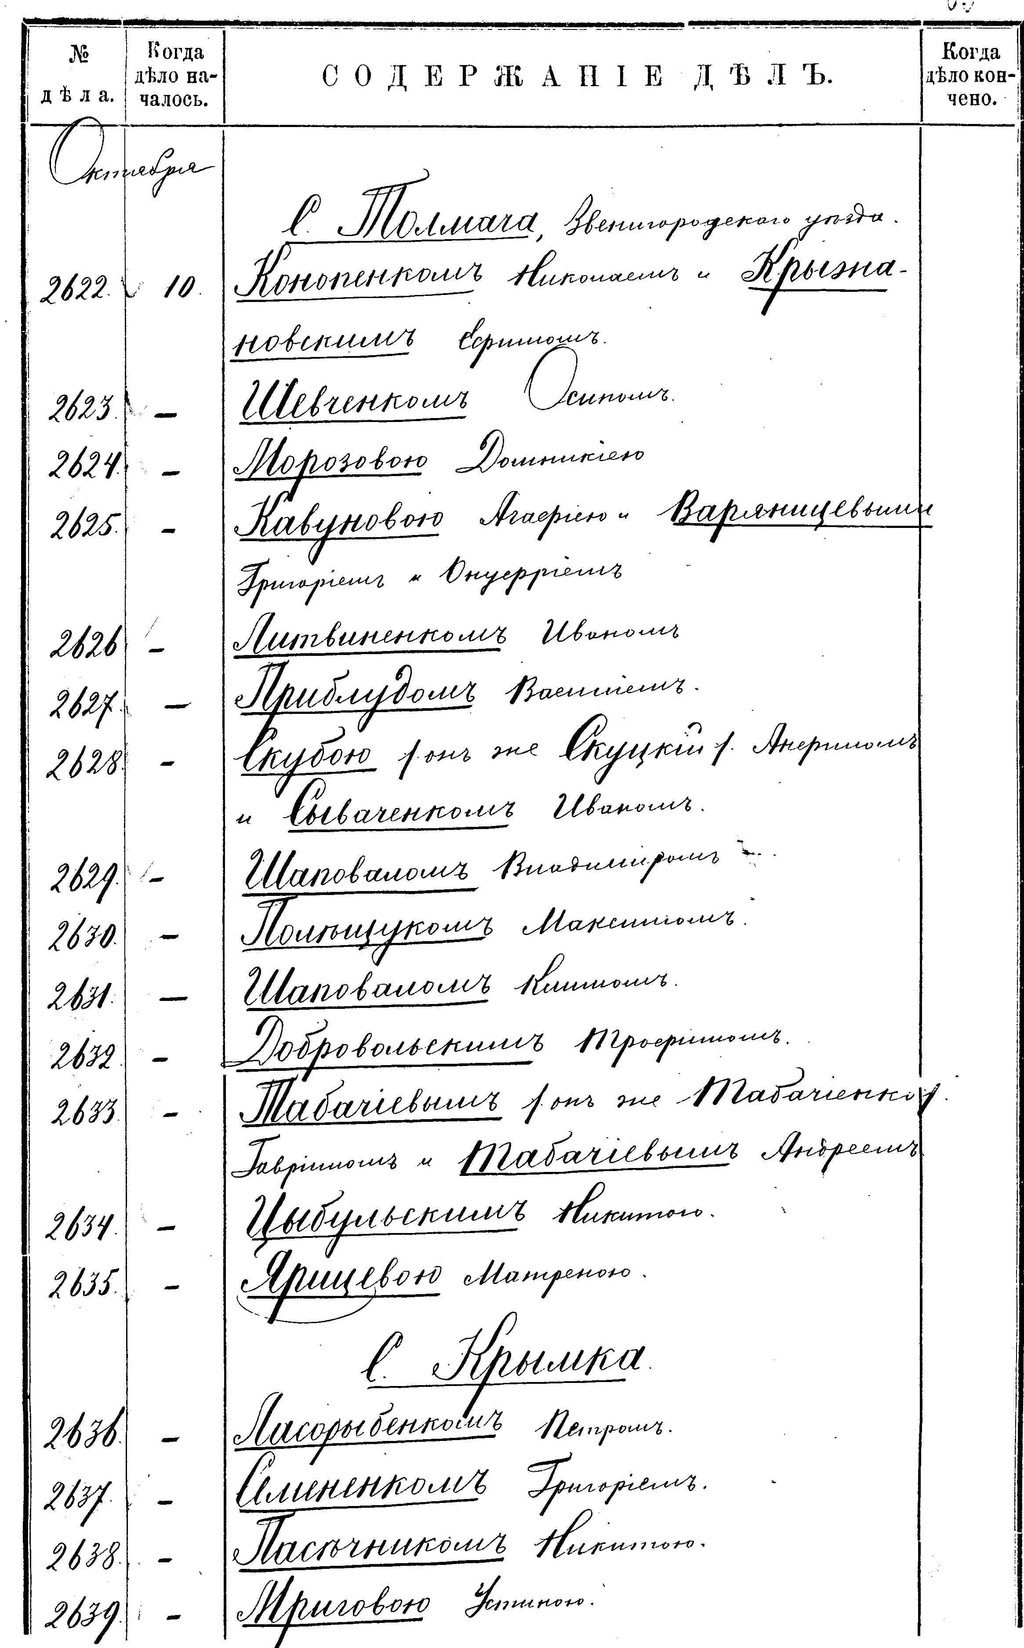 № дѣла.
Когда дѣло началось.
СОДЕРЖАНІЕ ДѢЛЪ.
Когда дѣло кончено.
Октября
С. Толмача, Звенигородскаго уѣзда.
2622. 10. Конопенкомъ Николаемъ и Крыжа-
новскимъ Ефимомъ.
2623. — Шевченкомъ Осипомъ.
2624. — Морозовою Домникіею
2625. — Кавуновою Агафіею и Варяницевыми
Григоріемъ и Онуфріемъ
2626 — Литвиненкомъ Иваномъ
2627. — Приблудомъ Василіемъ.
2628. — Скубою (онъ же Скуцкій). Анфимомъ
и Сываченкомъ Иваномъ.
2629. — Шаповаломъ Владиміромъ
2630. — Полѣщукомъ Максимомъ.
2631. — Шаповаломъ Климомъ.
2632. — Добровольскимъ Трофимомъ.
2633. — Табачіевымъ (онъ же Табачіенко).
Гавріиломъ и Табачіевымъ Андреемъ
2634. — Цыбульскимъ Никитою.
2635. —Ярицевою Матреною.
С. Крымка.
2636. — Ласорыбенкомъ Петромъ.
2637. — Семененкомъ Григоріемъ.
2638. — Пасѣчникомъ Никитою.
2639. — Мриговою Устиною.